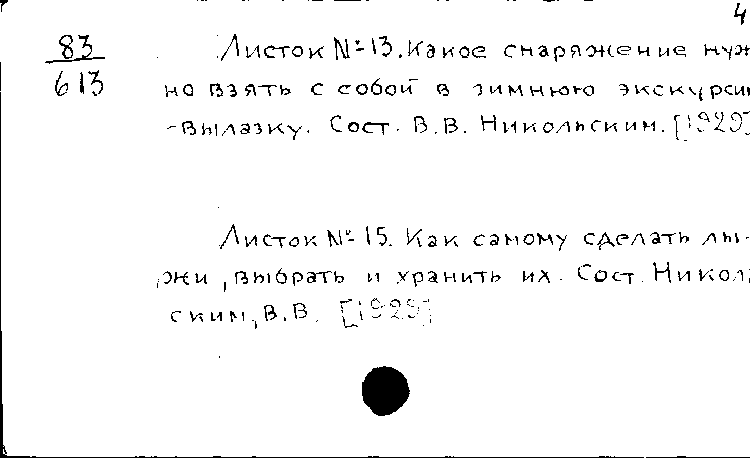 4
83
613
Листок № 13. Какое снаряжение нуж
но взять с собой в зимнюю экскурси
-вылазку. Сост. В.В. Никольским. [1929]
Листок № 15. Как самому сделать лы-
жи, выбрать и хранить их. Сост. Никол
ским, В.В. [1929]